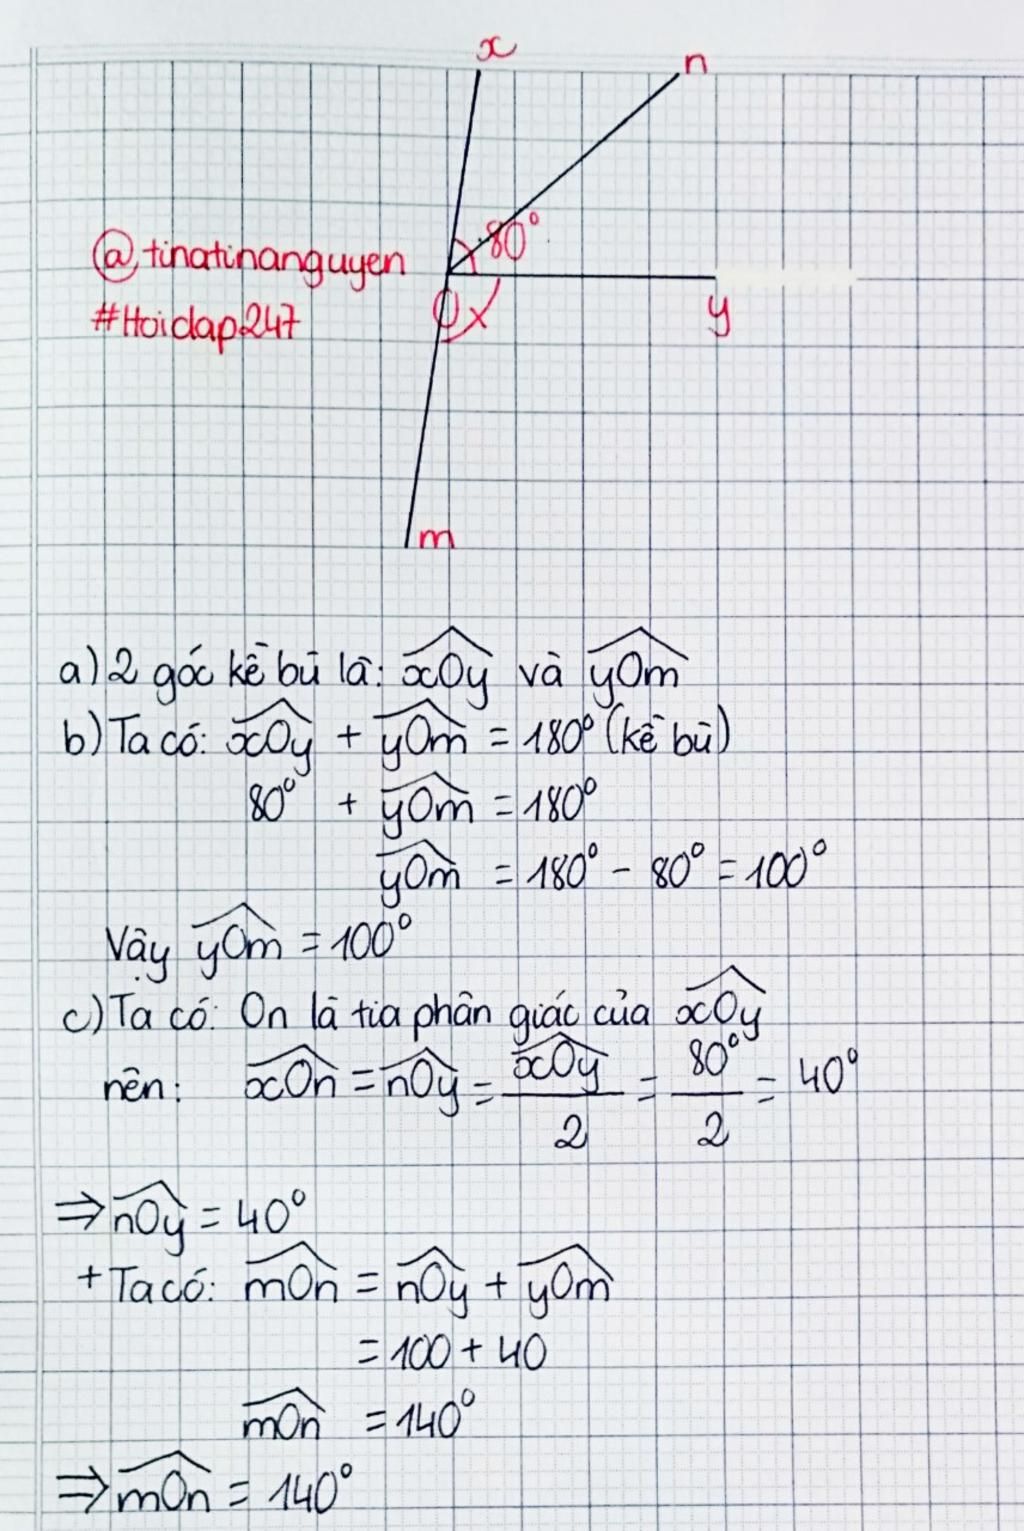 x
n
80°
@tinatinanguyen
#Hoidap247
O
y
m
a) 2 góc kề bù là: xOy và yOm
b) Ta có: xOy + yOm = 180° (kề bù)
80° + yOm = 180°
yOm = 180° - 80° = 100°
Vậy yOm = 100°
c) Ta có: On là tia phân giác của xOy
nên: xOn = nOy = xOy/2 = 80°/2 = 40°
⇒ nOy = 40°
+ Ta có: mOn = nOy + yOm
= 100 + 40
mOn = 140°
⇒ mOn = 140°